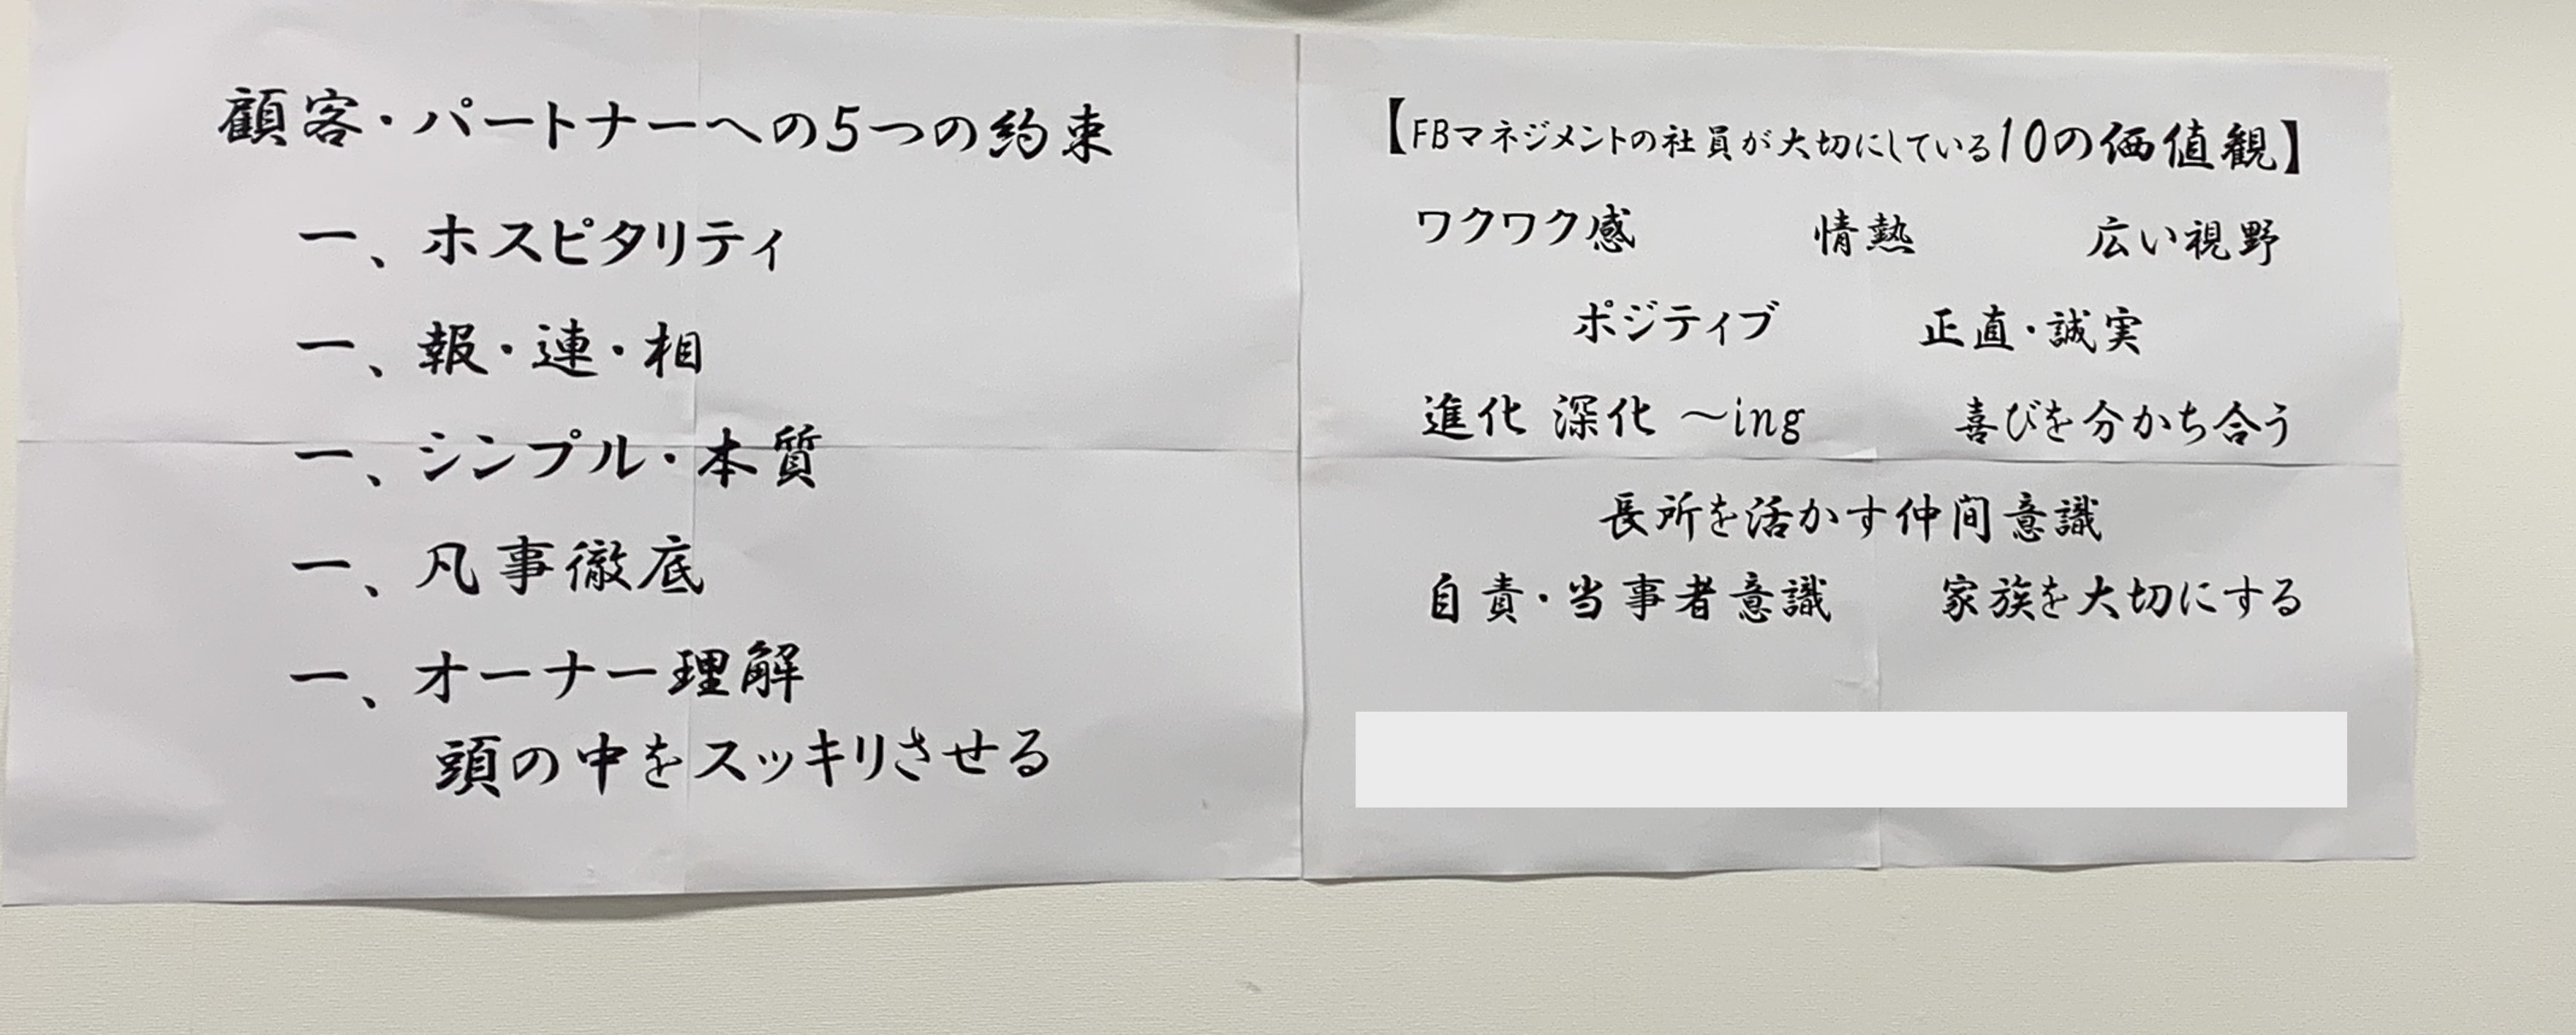 顧客・パートナーへの5つの約束
一、ホスピタリティ
一、報・連・相
一、シンプル・本質
一、凡事徹底
一、オーナー理解
頭の中をスッキリさせる
【FBマネジメントの社員が大切にしている10の価値観】
ワクワク感 情熱 広い視野
ポジティブ 正直・誠実
進化 深化 ～ing 喜びを分かち合う
長所を活かす仲間意識
自責・当事者意識 家族を大切にする